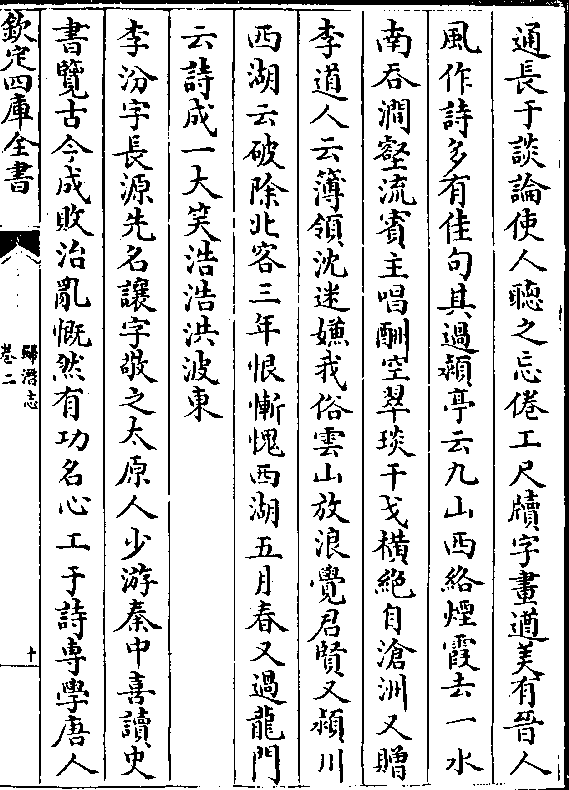 通長于談論使人聽之忘倦工尺牘字畫遒美有晉人
風作詩多有佳句其過潁亭云九山西絡煙霞去一水
南吞澗壑流賓主唱酬空翠琰干戈橫絶自滄洲又贈
李道人云簿領沈迷嫌我俗雲山放浪覺君賢又潁川
西湖云破除北客三年恨慚愧西湖五月春又過龍門
云詩成一大笑浩浩洪波東
李汾字長源先名讓字敬之太原人少游秦中喜讀史
書覽古今成敗治亂慨然有功名心工于詩専學唐人
欽定四庫全書
歸潛志
卷二
十